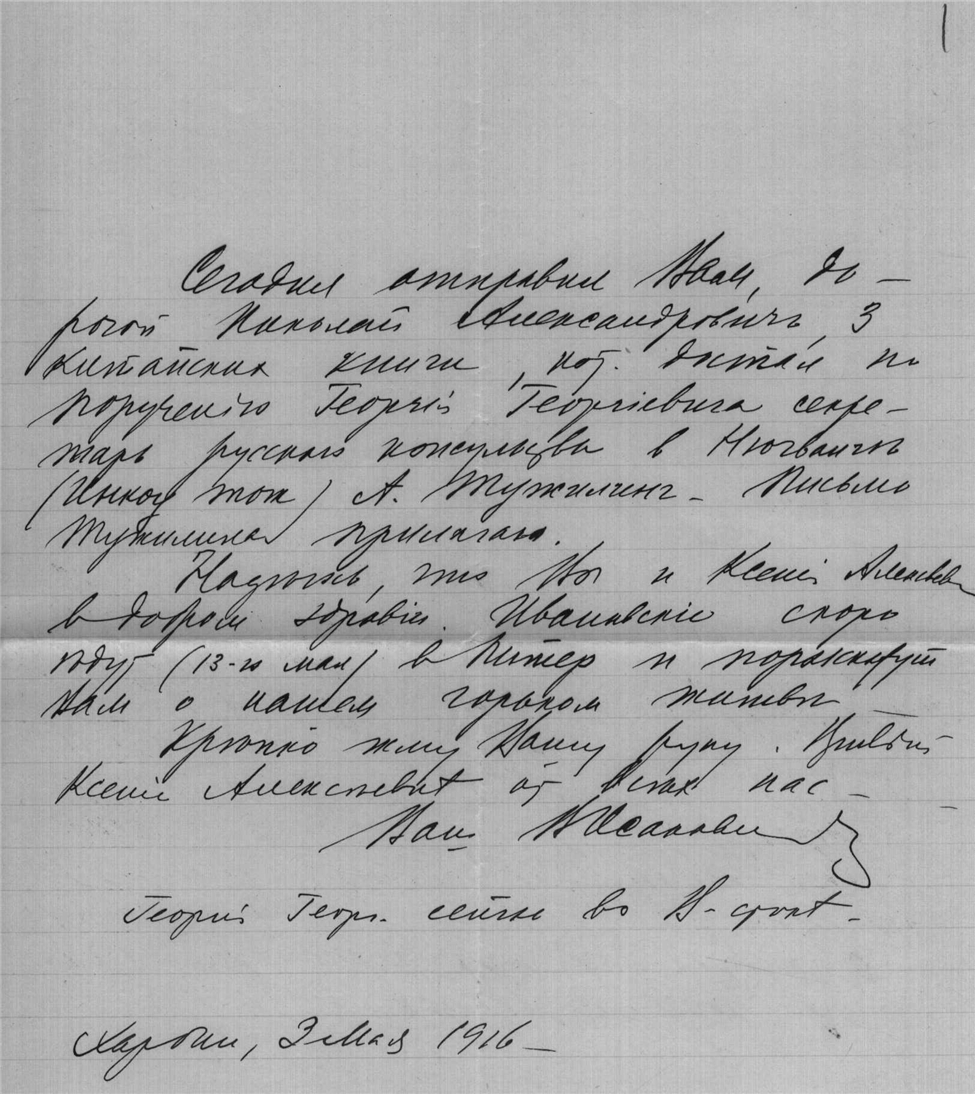 Сегодня отправил Вам, до-
рогой Николай Александровичъ, 3
китайския книги, кот. достал по
порученiю Георгiя Георгiевича секре-
тарь русскаго консульства в Нючванге
(Инкоу тож) А. Тужилинг - Письмо
Тужилина прилагаю.
Надеюсь, что Вы и Ксенiя Алексеевна
в добром здравiи. Ивановскiе скоро
едут (13-го мая) в Питер и порасскажут
Вам о нашем горьком житье.
Крепко жму Вашу руку. Привет
Ксенiи Алексеевне от всех нас -
Ваш
Георгiй Георг. сейчас во В-сток -
Харбин, 3 Мая 1916 -